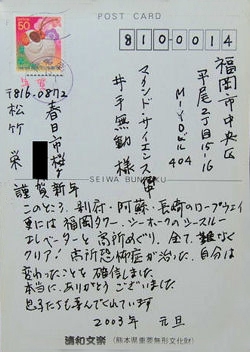 POST CARD
50
810-0014
福岡市中央区
平尾2丁目15-16
M-1YDビル
404
マインド・サイエンス
井手無動様
〒816-0872
春日市桜
松竹 栄
SEIWA BUNRAKU
謹賀新年
このところ、別府・阿蘇・長崎のロープウェイ
車には福岡タワー、シーホークのシースルー
エレベーターと高所めぐり。全て、難なく
クリア！高所恐怖症が治った、自分は
変わったことを確信しました。
本当に、ありがとうございました
息子たちも喜んでくれています
2003年 元旦
清和文楽（熊本県重要無形文化財）